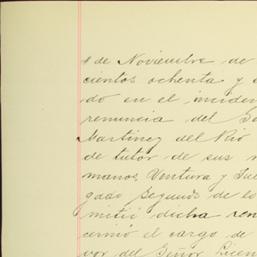 4 de Noviembre de
cientos ochenta y
do en el inciden
renuncia del
Martinez del Rio
de tutor de sus
manos Ventura y Jul
gado Segundo de lo
mitió dicha ren
cernió el cargo de
vor del Señor Licen